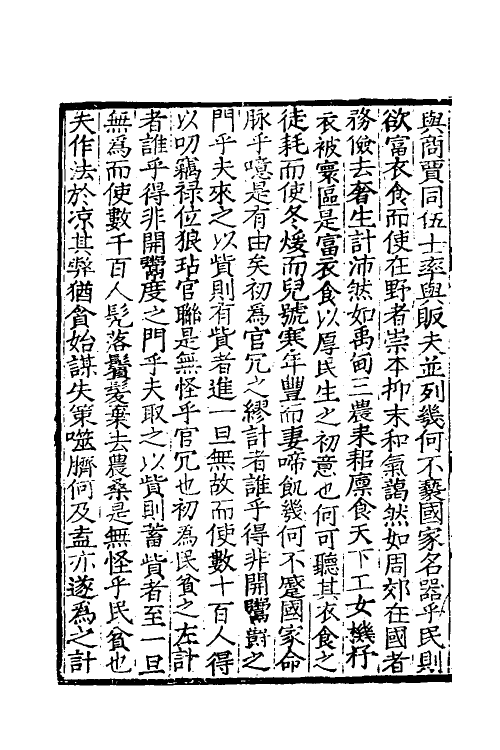 與商賈同伍士率與販夫並列幾何不褻國家名器乎民則
欲富衣食而使在野者崇本抑末和氣藹然如周郊在國者
務儉去奢生計沛然如禹甸三農耒耜廪食天下工女機杼
衣被寰區是富衣食以厚民生之初意也何可聽其衣食之
徒耗而使冬煖而兒號寒年豐而妻啼飢幾何不蹙國家命
脉乎噫是有由矣初為官冗之繆計者誰乎得非開鬻爵之
門乎夫來之以貲則有貲者進一旦無故而使數十百人得
以叨竊禄位狼玷官聯是無怪乎官冗也初為民貧之左計
者誰乎得非開鬻度之門乎夫取之以貲則蓄貲者至一旦
無為而使數千百人髠落鬚髮棄去農桑是無怪乎民貧也
夫作法於凉其弊猶貪始謀失策噬臍何及盍亦遂為之計